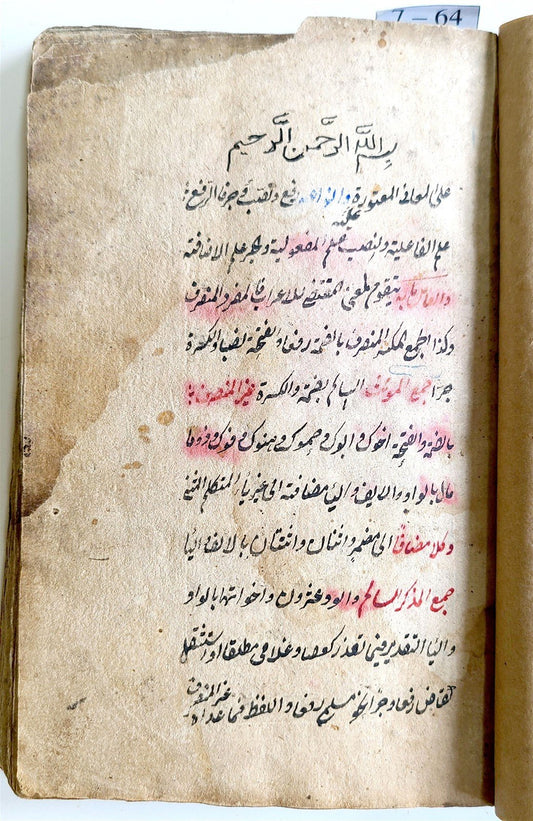 7 – 64
بسم الله الرحمن الرحيم
على المعانى المعتورة وانواعه رفع ونصب وجر فالرفع
علم الفاعلية والنصب علم المفعولية والجر علم الاضافة
والعامل ما به يتقوم المعنى المقتضى للاعراب فالمفرد المنصرف
وكذا الجمع المكسر المنصرف بالضمة رفعا والفتحة نصبا والكسرة
جرا جمع المؤنث السالم بضمة والكسرة غير المنصرف
بالضمة والفتحة اخوك و ابوك و حموك و هنوك و فوك و ذو ما
مال بالواو والالف واليا مضافة الى غير يا المتكلم المثنى
وكلا مضافا الى مضمر واثنان واثنتان بالالف واليا
جمع المذكر السالم والو وعشرون واخواتها بالواو
واليا التقدير فيما تعذر كعصا وغلامى مطلقا او استثقل
كقاض رفعا وجرا نحو مسلمى رفعا واللفظ فيما عداه غير المنصرف